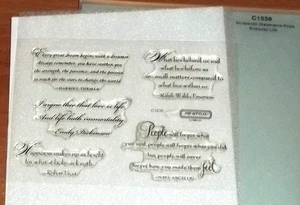 C1539
Every great dream begins with a dreamer
always remember, you have within you
the strength, the patience, and the passion
to reach for the stars to change the world
HARRIET TUBMAN
What lies behind us and
what lies before us
are small matters compared to
what lies within us
Ralph Waldo Emerson
I argue thee that love is life
And life hath immortality
Emily Dickinson
Happiness makes up in height
for what it lacks in length
Robert Frost
People will forget what
you said, people will forget what you did
but people will never
forget how you made them feel